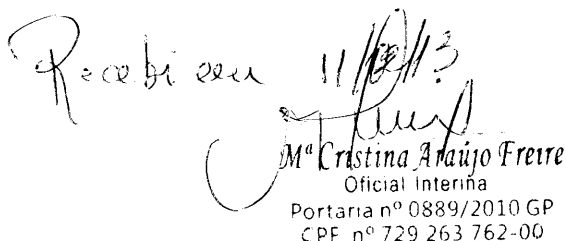 Recebi em 11/12/13
Mª Cristina Araújo Freire
Oficial Interina
Portaria nº 0889/2010 GP
CPF nº 729 263 762-00